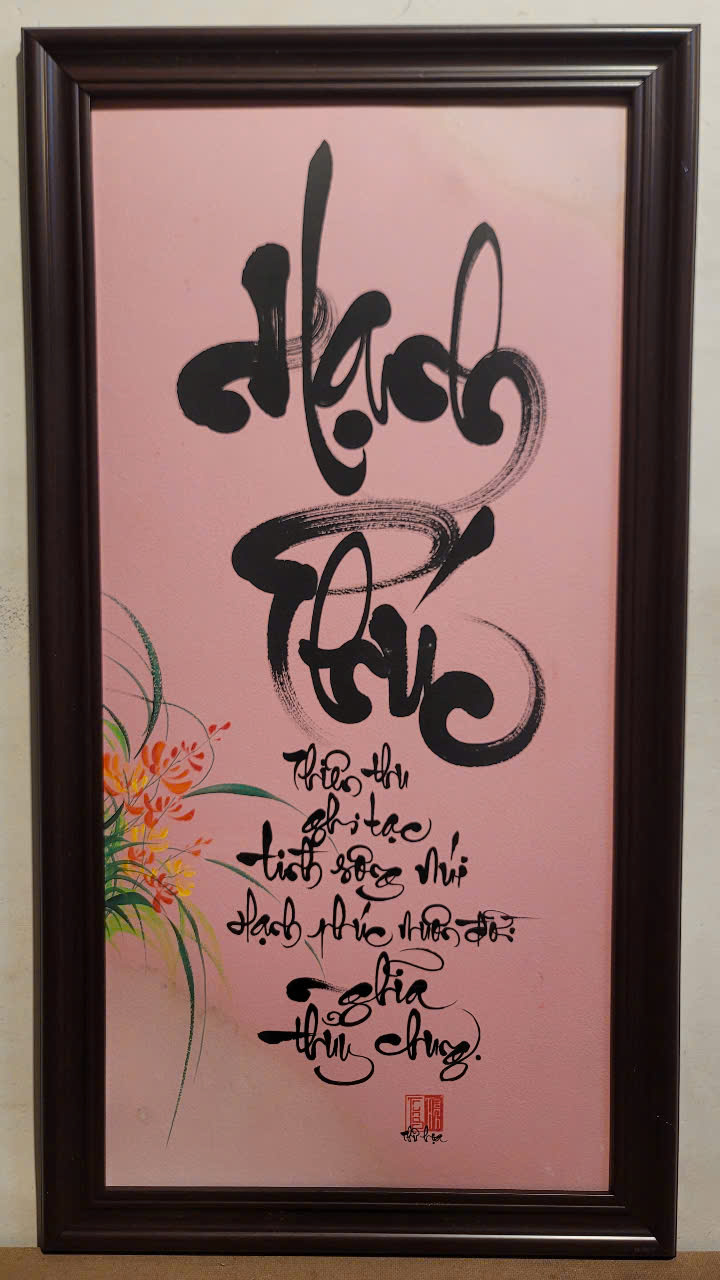 Hạnh
Phúc
Thiên thu
ghi tạc
tình sông núi
Hạnh phúc muôn đời
nghĩa
thủy chung.